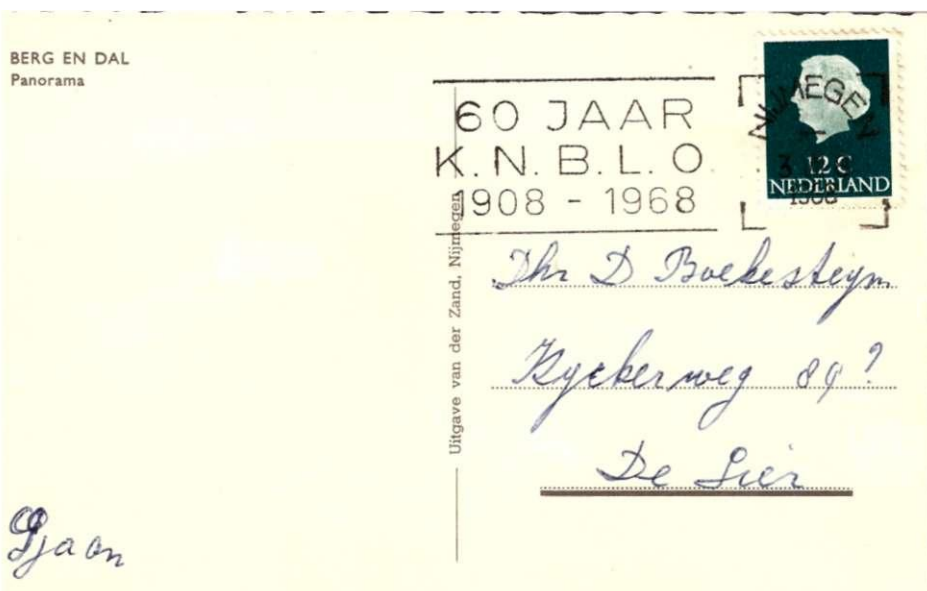 BERG EN DAL
Panorama
60 JAAR
K.N.B.L.O
1908 - 1968
NIJMEGEN
12 C
NEDERLAND
1968
Uitgave van der Zand, Nijmegen
Dhr D Boekesteyn
Kyckerweg 89?
De Lier
Sjaan